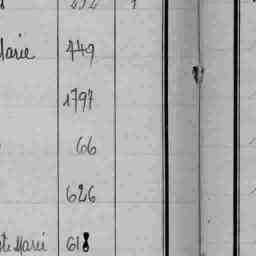 Marie 449
1797
66
626
Ste Marie 618